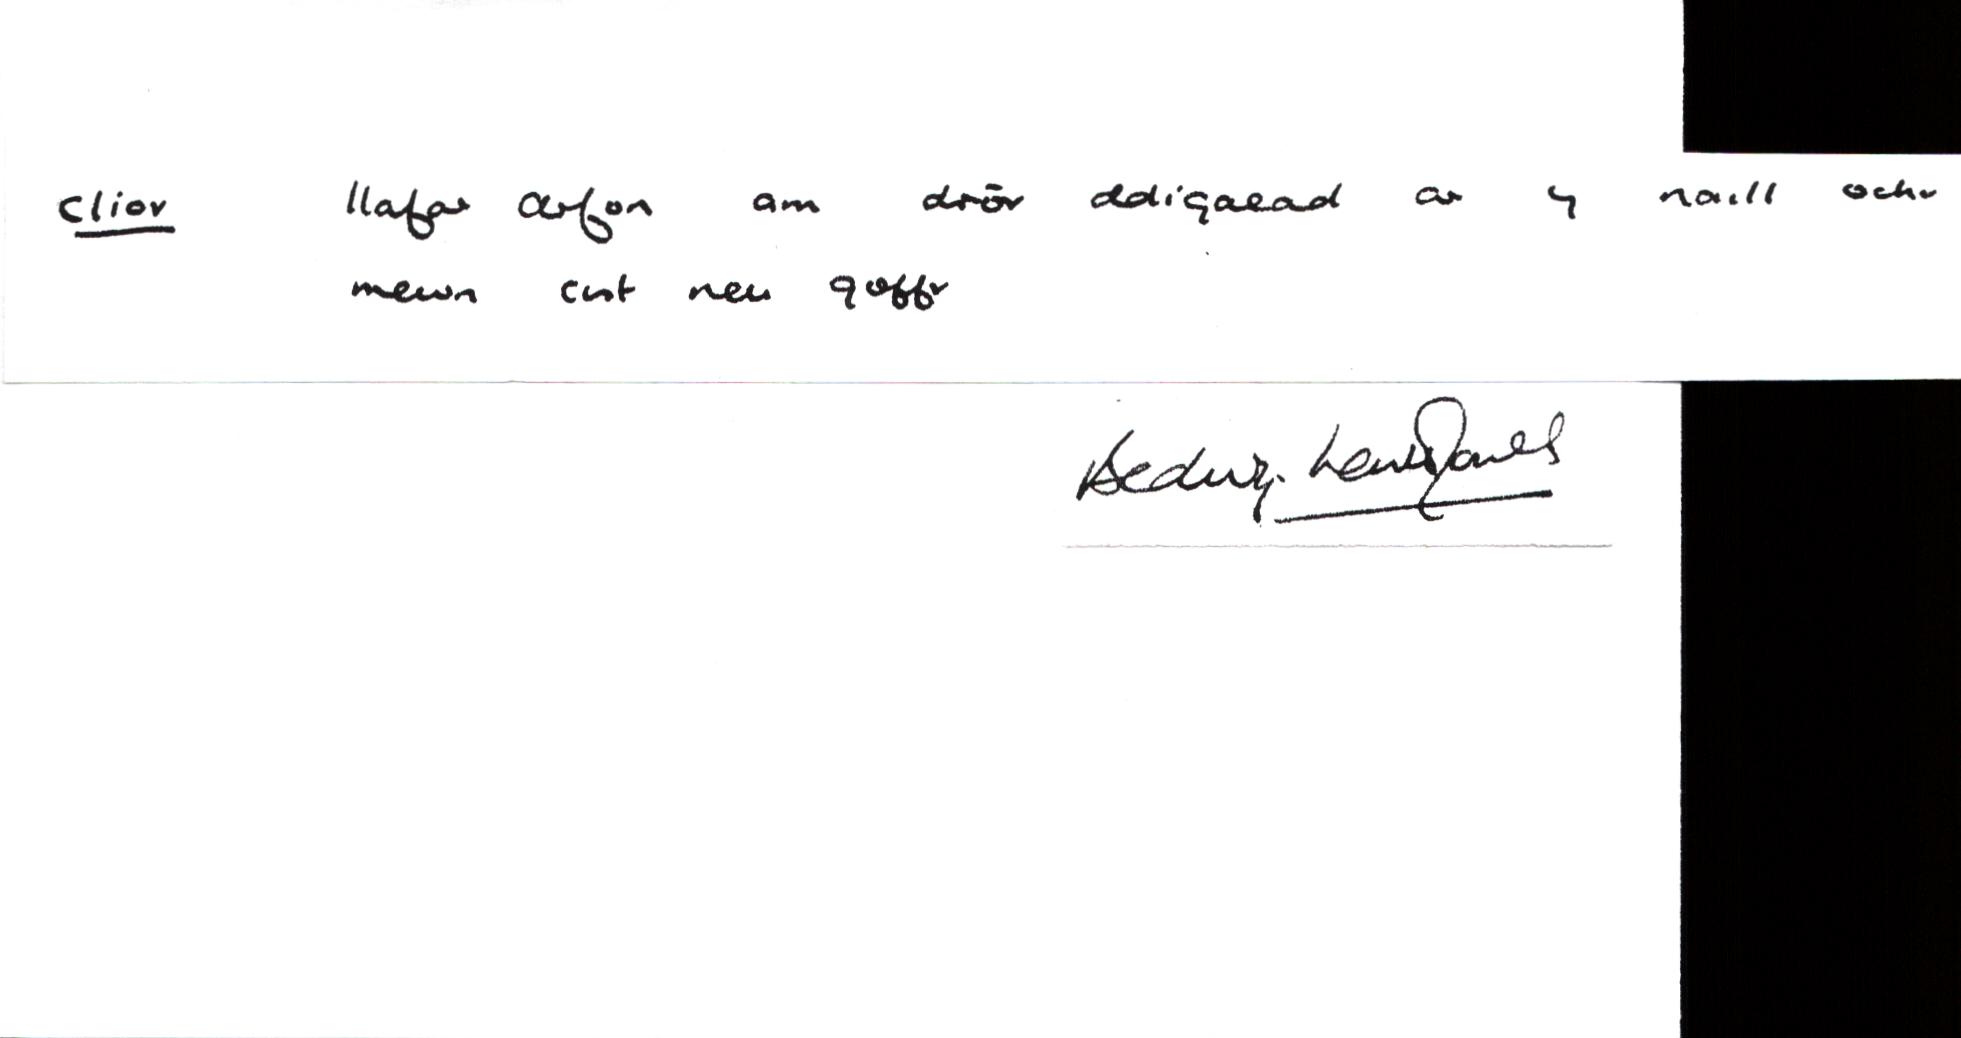 clior llafar Arfon am drôr ddigaead ar y naill ochr
mewn cist neu goffr
Dedwydd Lewis Jones